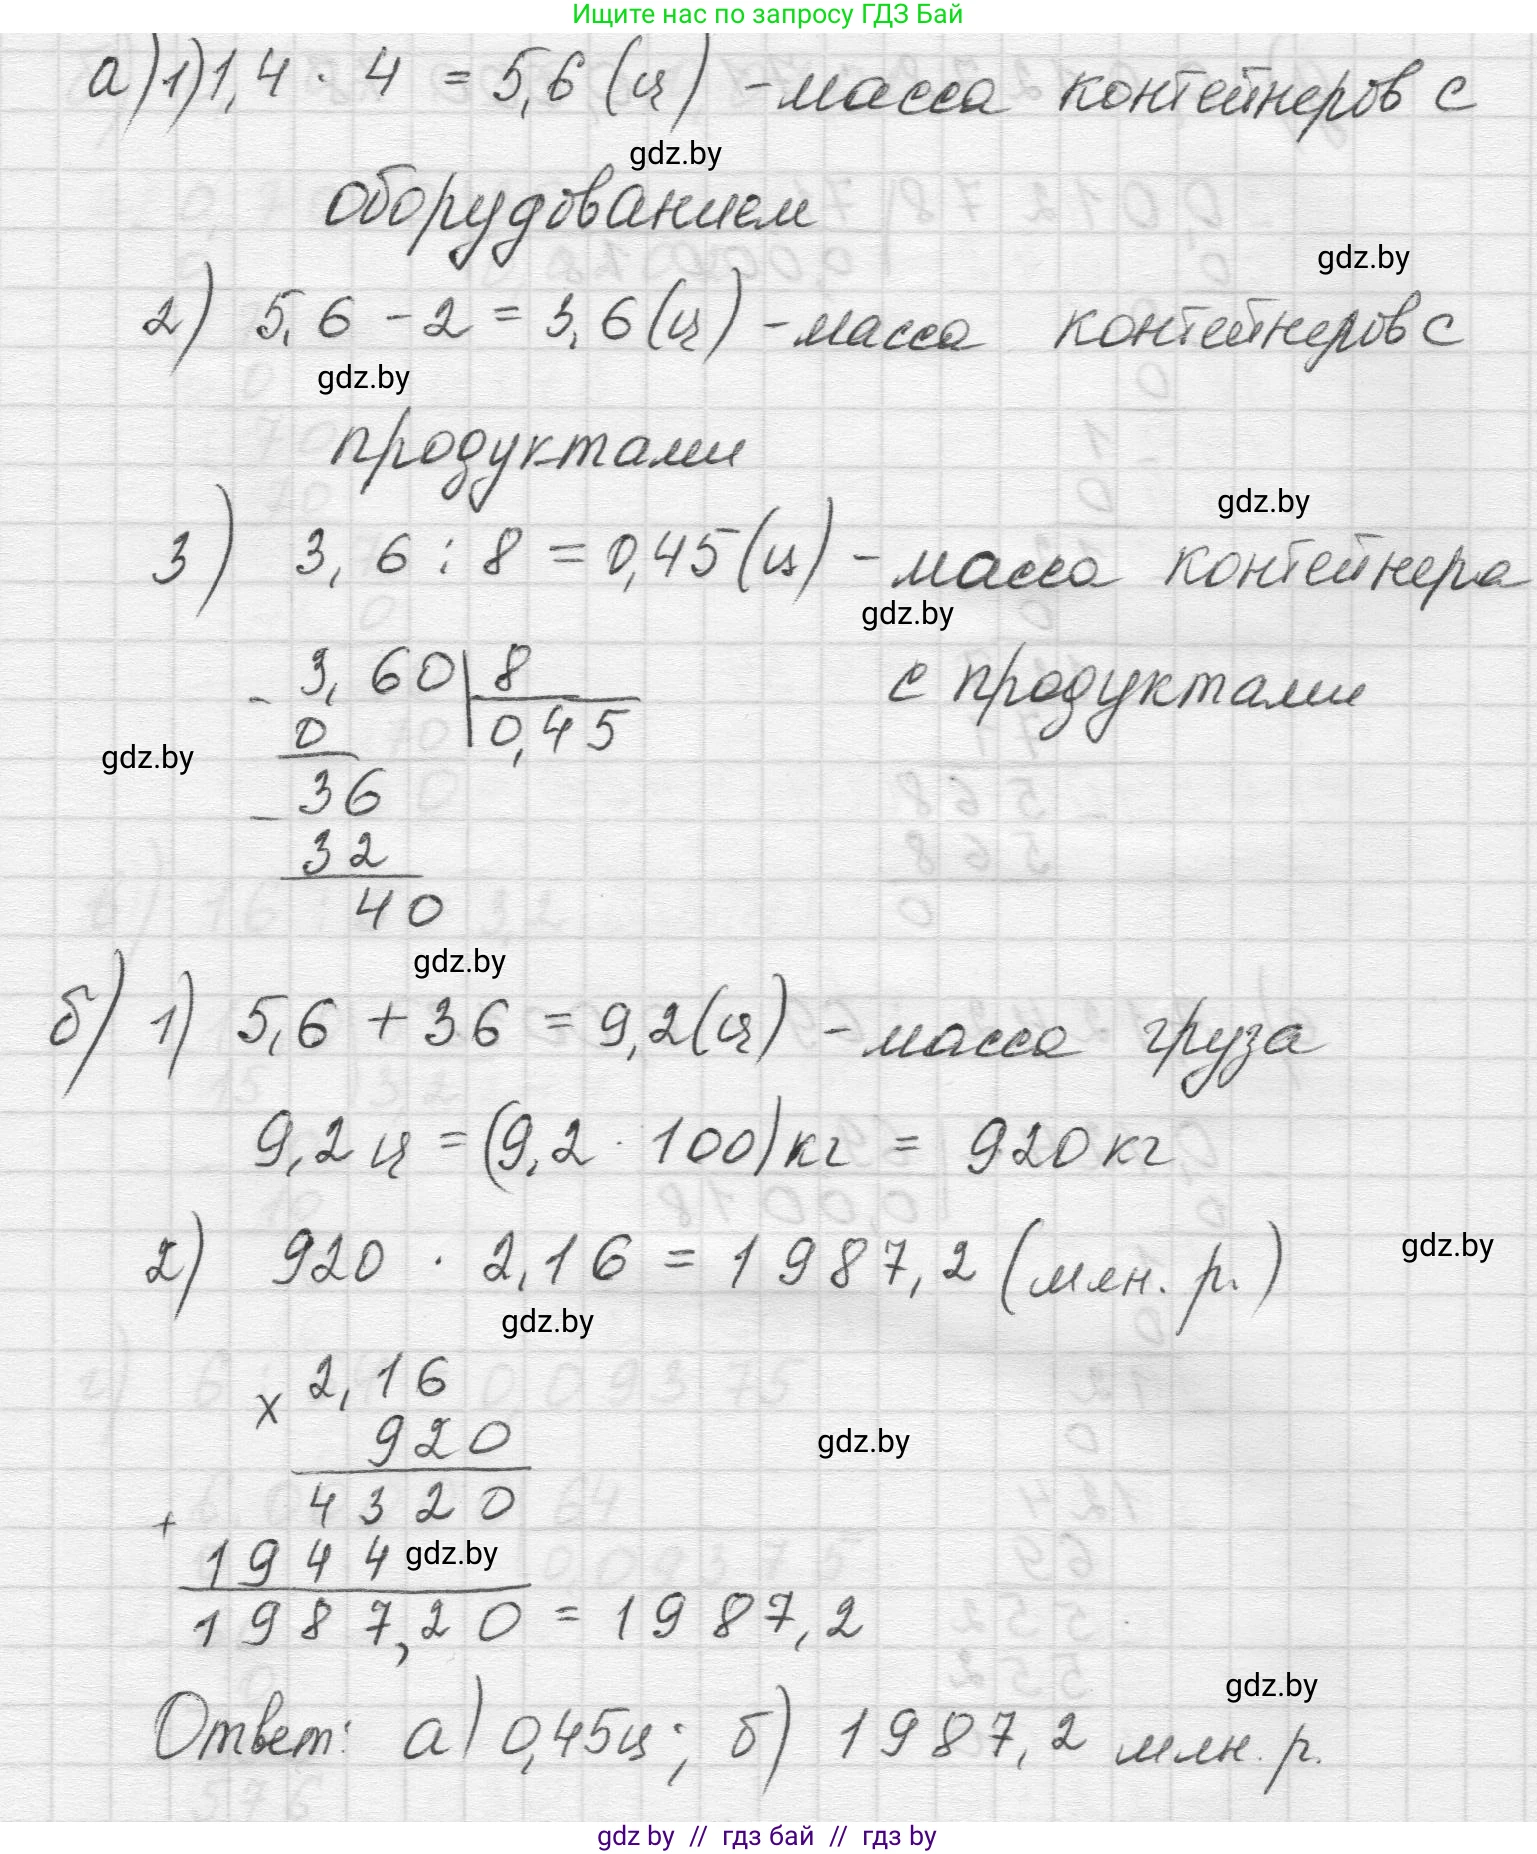 Ищите нас по запросу ГДЗ Бай
а) 1) 1,4 · 4 = 5,6 (ц) - масса контейнеров с
gdz.by
оборудованием
gdz.by
2) 5,6 - 2 = 3,6 (ц) - масса контейнеров с
gdz.by
продуктами
gdz.by
3) 3,6 : 8 = 0,45 (ц) - масса контейнера
gdz.by
с продуктами
- 3,60 | 8
0 0,45
gdz.by
- 36
32
40
gdz.by
б) 1) 5,6 + 36 = 9,2 (ц) - масса груза
9,2 ц = (9,2 · 100) кг = 920 кг
2) 920 · 2,16 = 1987,2 (млн. р.)
gdz.by
gdz.by
x 2,16
920
gdz.by
+ 4320
1944
gdz.by
1987,20 = 1987,2
gdz.by
Ответ: а) 0,45ц; б) 1987,2 млн. р.
gdz by // гдз бай // гдз by